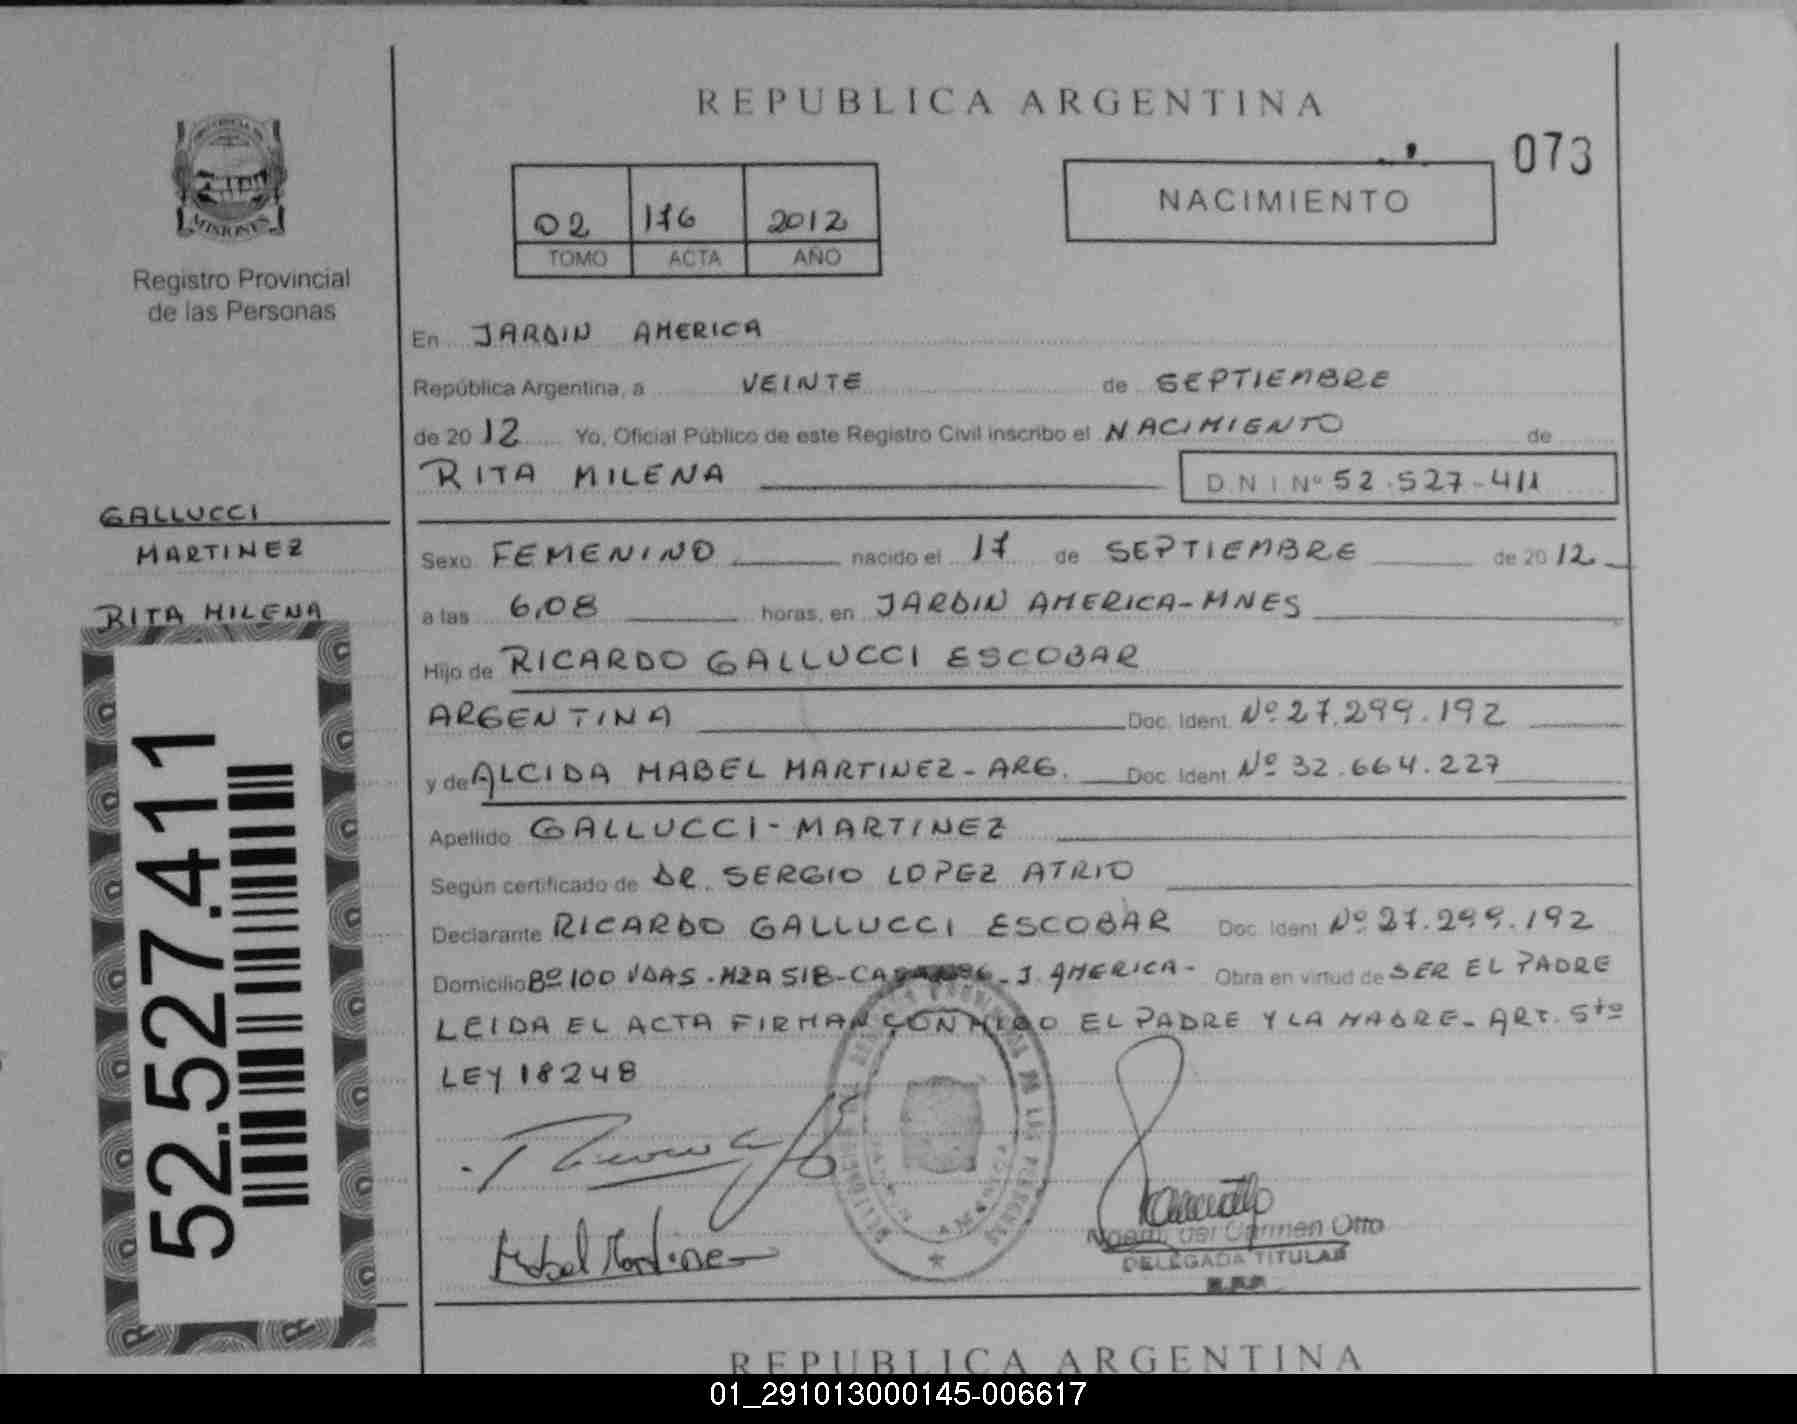 REPUBLICA ARGENTINA
073
02 176 2012
TOMO ACTA AÑO
NACIMIENTO
MISIONES
Registro Provincial
de las Personas
En JARDIN AMERICA
República Argentina, a VEINTE de SEPTIEMBRE
de 2012 Yo, Oficial Público de este Registro Civil inscribo el NACIMIENTO de
RITA MILENA D N I Nº 52.527-411
GALLUCCI
MARTINEZ
RITA MILENA
Sexo FEMENINO nacido el 17 de SEPTIEMBRE de 2012
a las 6,08 horas, en JARDIN AMERICA-MNES
Hijo de RICARDO GALLUCCI ESCOBAR
ARGENTINA Doc. Ident. Nº 27.299.192
y de ALCIDA MABEL MARTINEZ - ARG. Doc. Ident. Nº 32.664.227
Apellido GALLUCCI - MARTINEZ
Según certificado de DR. SERGIO LOPEZ ATRIO
Declarante RICARDO GALLUCCI ESCOBAR Doc. Ident Nº 27.299.192
Domicilio Bº 100 VDAS - MZA S1B - J. AMERICA- Obra en virtud de SER EL PADRE
LEIDA EL ACTA FIRMAN CONMIGO EL PADRE Y LA MADRE - ART. 5to
LEY 18248
52.527.411
Mabel Martinez
del Carmen Otto
DELEGADA TITULAR
REPUBLICA ARGENTINA
01_291013000145-006617